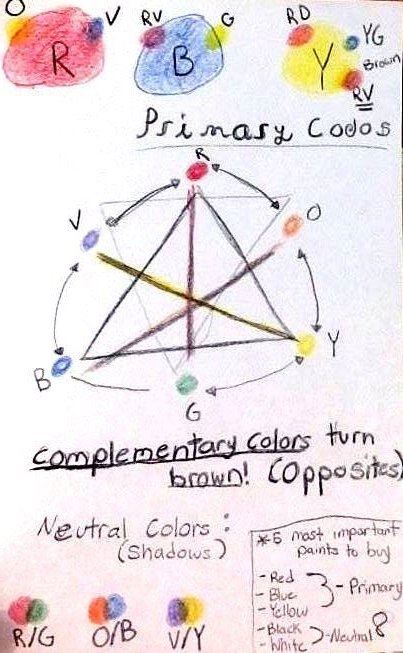 O R V
RV B G
RD Y YG
Brown
RV
Primary Codos
R
V O
B Y
G
Complementary Colors turn
brown! (Opposites)
Neutral Colors:
(Shadows)
*5 most important
paints to buy
- Red
- Blue
- Yellow
- Primary
- Black
- White
- Neutral
R/G O/B V/Y